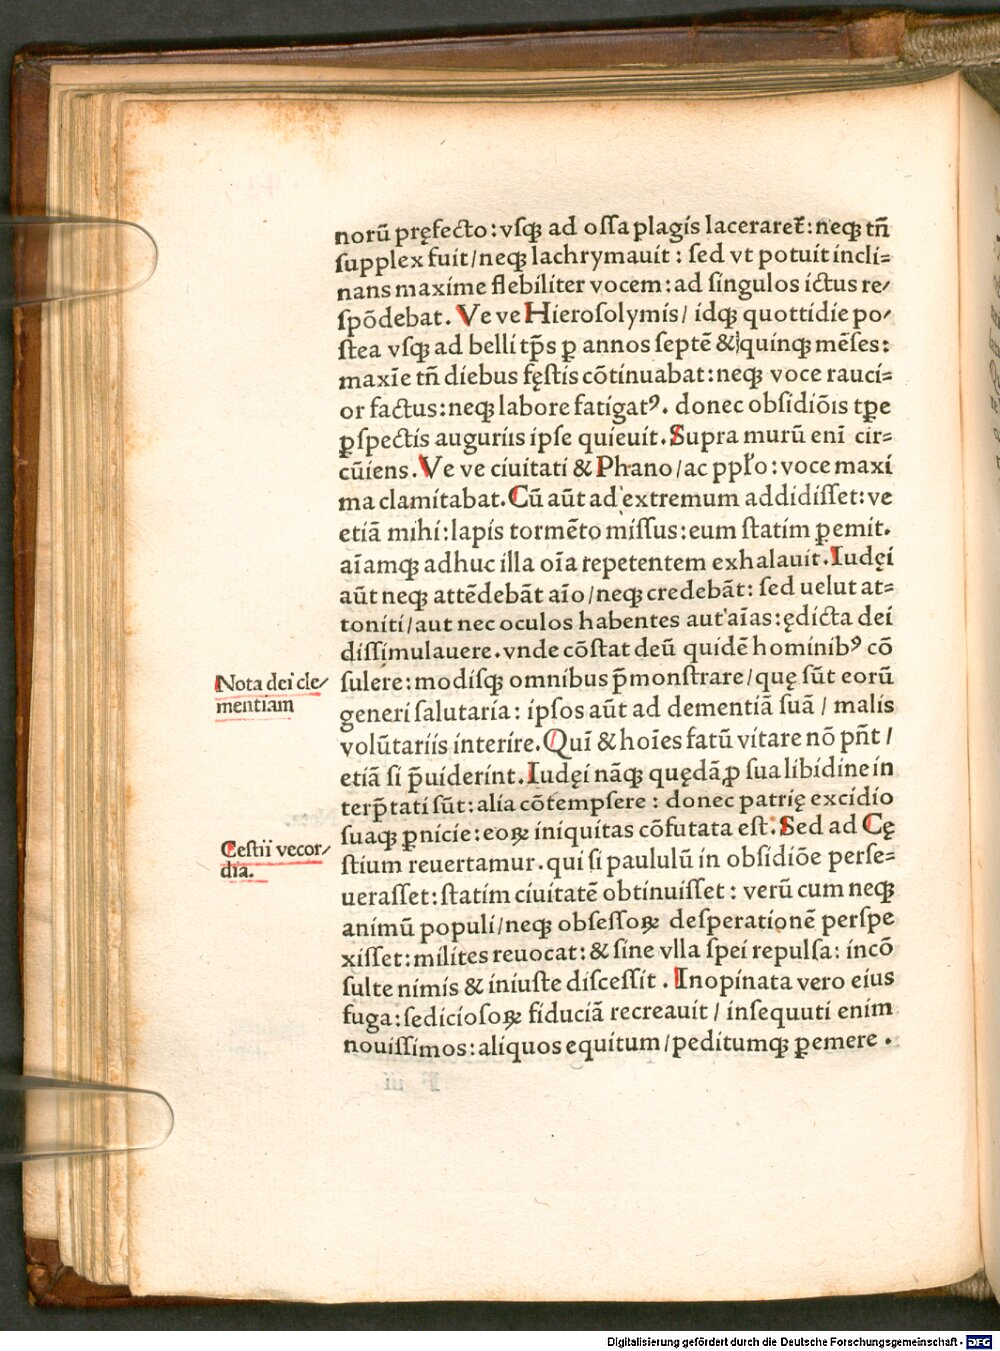 norū pręfecto:vſqꝫ ad oſſa plagis laceraret̄:neqꝫ tn̄
ſupplex fuit/neqꝫ lachrymauit : ſed vt potuit incli⸗
nans maxime flebiliter vocem:ad ſingulos ictus re⸝
ſpōdebat. Ve ve Hieroſolymis/ idqꝫ quottidie po⸝
ſtea vſqꝫ ad belli tp̄s ꝑ annos ſeptē &quinqꝫ mēſes:
maxīe tn̄ diebus fęſtis cōtinuabat:neqꝫ voce rauci⸗
or factus:neqꝫ labore fatigatꝰ. donec obſidiōis tꝑe
ꝑſpectis auguriis ipſe quieuit. Supra murū enī cir⸗
cūiens. Ve ve ciuitati & Phano/ac ppło: voce maxi
ma clamitabat. Cū aūt ad extremum addidiſſet: ve
etiā mihi: lapis tormēto miſſus: eum ſtatim ꝑemit.
aīamqꝫ adhuc illa oīa repetentem exhalauit. Iudęi
aūt neqꝫ attēdebāt aīo/neqꝫ credebāt: ſed uelut at⸗
toniti/aut nec oculos habentes aut aīas: ędicta dei
diſſimulauere. vnde cōſtat deū quidē hominibꝰ cō
ſulere: modiſqꝫ omnibus p̄monſtrare/quę ſūt eorū
generi ſalutaria: ipſos aūt ad dementiā ſuā / malis
volūtariis interire. Quī & hoīes fatū vitare nō pn̄t /
etiā ſi p̄uiderint. Iudęi nāqꝫ quędā ꝓ ſua libidine in
terp̄tati ſūt: alia cōtempſere : donec patrię excidio
ſuaqꝫ ꝑnicie: eoꝝ iniquitas cōfutata eſt. Sed ad Cę
ſtium reuertamur. qui ſi paululū in obſidiōe perſe⸗
ueraſſet: ſtatim ciuitatē obtinuiſſet : verū cum neqꝫ
animū populi/neqꝫ obſeſſoꝝ deſperationē perſpe
xiſſet: milites reuocat: & ſine vlla ſpei repulſa: incō
ſulte nimis & iniuſte diſceſſit . Inopinata vero eius
fuga: ſedicioſoꝝ fiduciā recreauit / inſequuti enim
nouiſſimos: aliquos equitum/peditumqꝫ ꝑemere .
Nota dei cle⸝
mentiam
Ceſtii vecor⸝
dia.
Digitalisierung gefördert durch die Deutsche Forschungsgemeinschaft - DFG